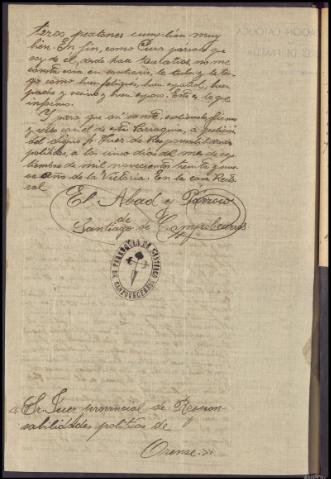 teros pastores cumplían muy
bien. En fin, como Cura párroco que
soy de él, donde hace los actos, no me
consta nada en contrario, le tuve y le ten-
go como buen feligrés, buen español, buen
padre y vecino y buen esposo. Esto es lo que
informo.
Y para que así conste, extiendo, firmo
y sello con el de esta Parroquia, a petición
del digno Sr. Juez de Responsabilidades
políticas, a los cinco días del mes de sep-
tiembre de mil novecientos treinta y nue-
ve Año de la Victoria. En la casa Rec-
ral
El Abad y Párroco
de
Santiago de
PARROQUIA DE SANTIAGO
Sr. Juez provincial de Respon-
sabilidades políticas de
Orense